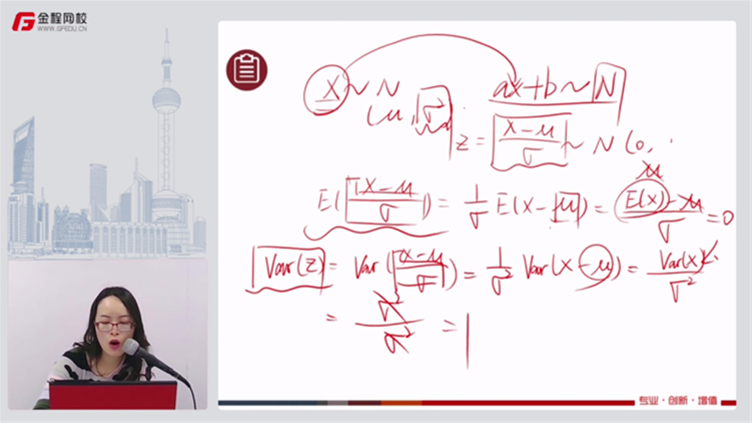 金程网校
WWW.GFEDU.CN
X ~ N
(μ, σ²)
ax+b ~ N
z = (x-μ)/σ ~ N(0, .
E((X-μ)/σ) = 1/σ E(X-μ) = (E(X)-μ)/σ = 0
μ
Var(z) = Var((x-μ)/σ) = 1/σ² Var(X-μ) = Var(X)/σ²
= σ²/σ² = 1
专业·创新·增值